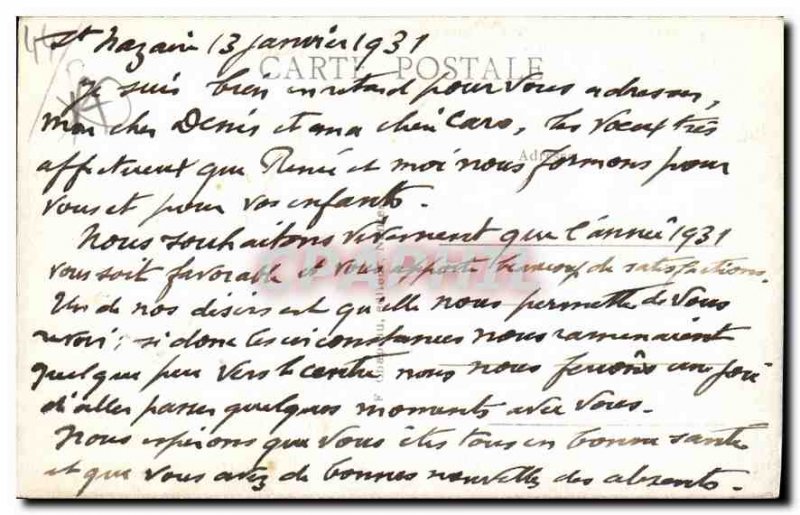 St Nazaire 13 janvier 1931
CARTE POSTALE
Je suis bien en retard pour vous adresser,
mon cher Denis et ma chère Caro, les vœux très
affectueux que Renée et moi nous formons pour
Adresse
vous et pour vos enfants.
Nous souhaitons vivement que l'année 1931
vous soit favorable et vous apporte beaucoup de satisfactions.
CPAPHIL
Un de nos désirs est qu'elle nous permette de vous
revoir; si donc les circonstances nous ramenaient
quelque peu vers le centre nous nous ferions une joie
d'aller passer quelques moments avec vous.
Nous espérons que vous êtes tous en bonne santé
et que vous avez de bonnes nouvelles des absents.